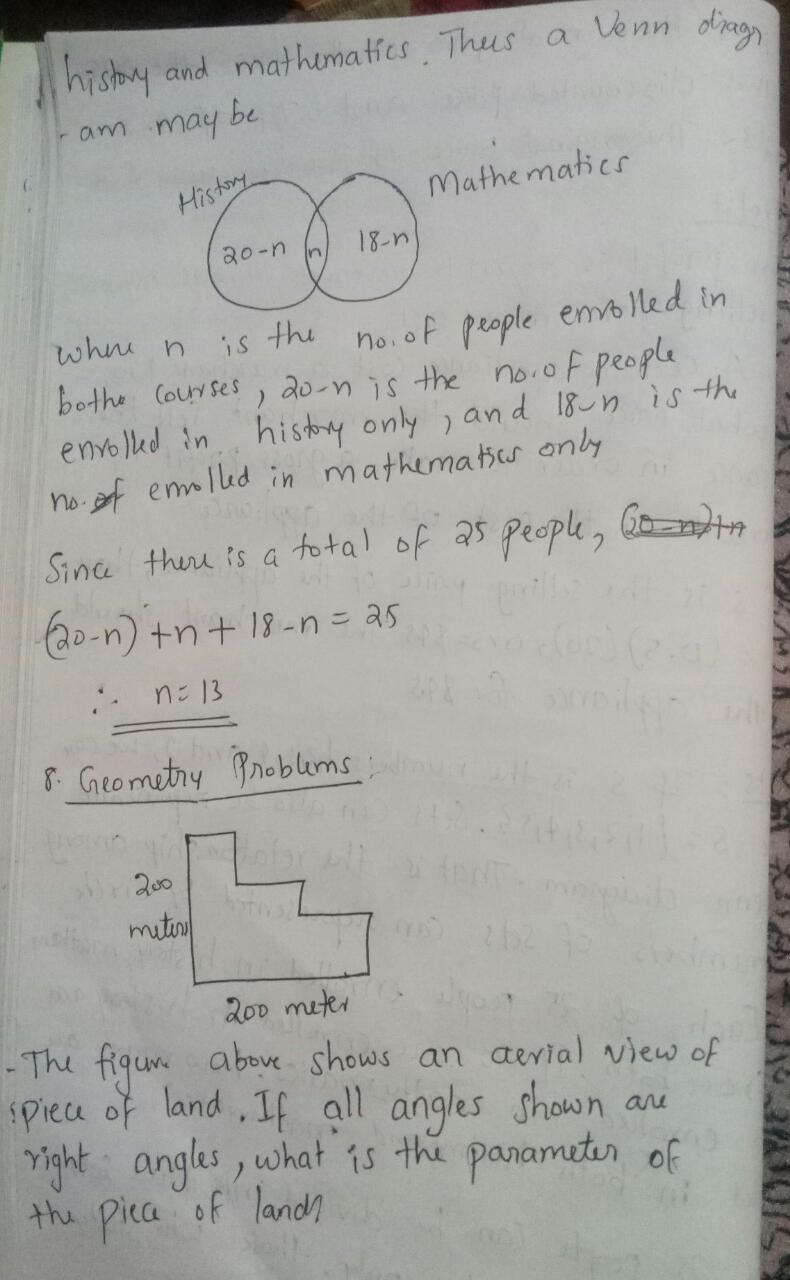 history and mathematics. Thus a Venn diagr
- am may be
History
Mathematics
20-n n 18-n
where n is the no. of people enrolled in
bothe courses, 20-n is the no. of people
enrolled in history only, and 18-n is the
no. of enrolled in mathematics only
Since there is a total of 25 people,
(20-n) + n + 18-n = 25
∴ n = 13
8. Geometry Problems:
200
meters
200 meter
- The figure above shows an aerial view of
piece of land. If all angles shown are
right angles, what is the parameter of
the piece of land?